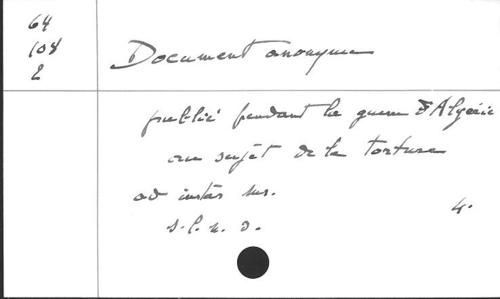 64
108
2
Document anonyme
publié pendant la guerre d'Algérie
au sujet de la torture
ad instar ms.
s.l.n.d.
4.